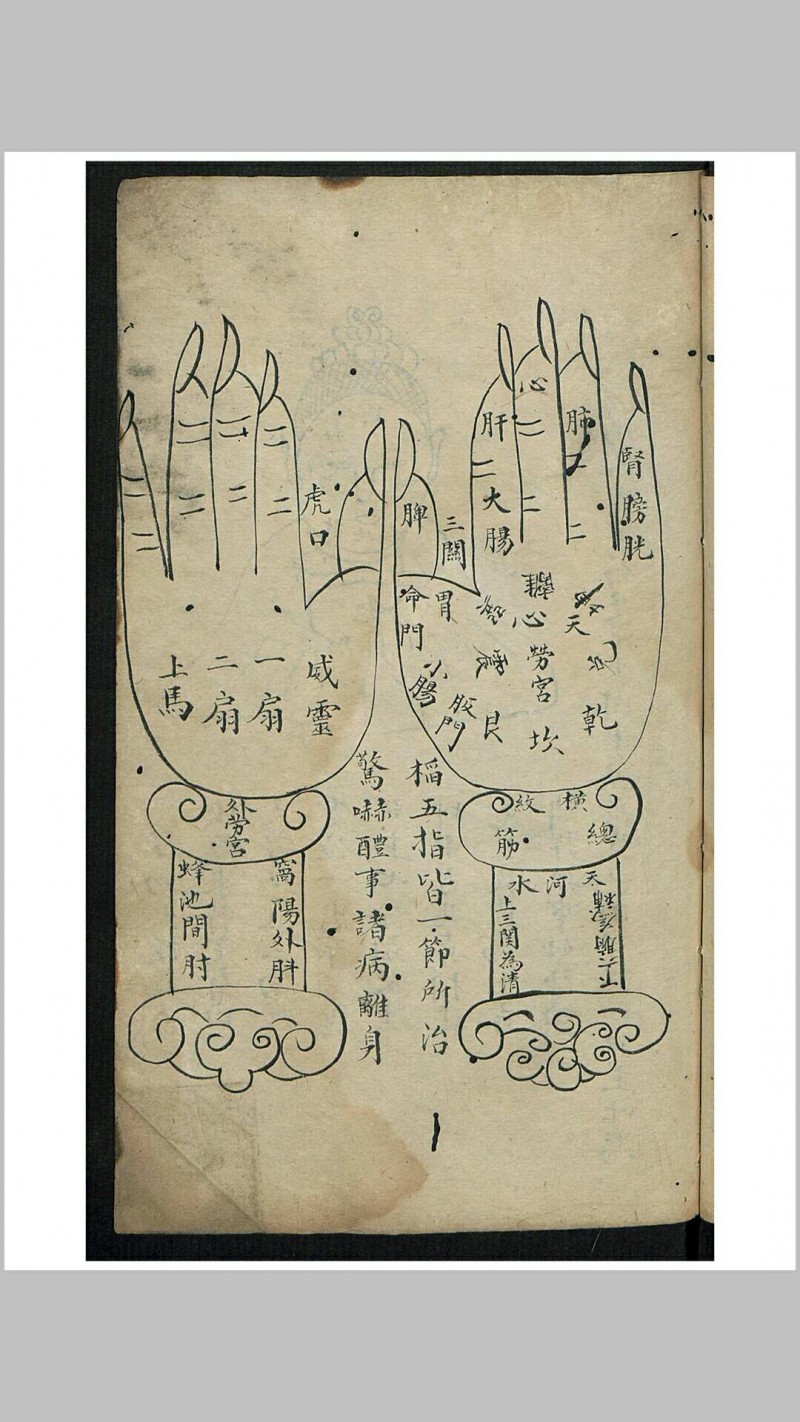 心
肝
肺
腎
膀胱
大腸
脾
三關
虎口
命門
胃
心
天
勞宮
乾
艮
坎
小腸
威靈
一扇
二扇
上馬
稻五指皆一節所治
驚嚇醴事諸病離身
橫紋
總筋
天河水
上三関為清
外勞宮
窩陽外䏔
蜂池間肘